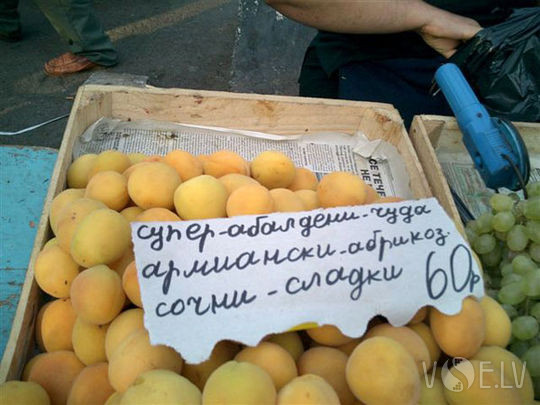 супер-абалдени-чуда
армиански-абрикоз.
сочни-сладки 60р
СЕ ТЕЧЕТ
Е НЕ
VSE.LV